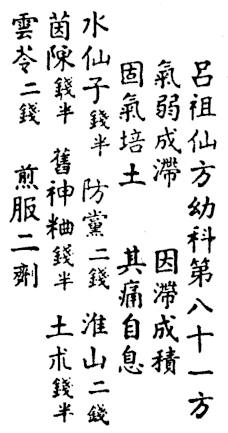 呂祖仙方幼科第八十一方
氣弱成滯　因滯成積
固氣培土　其痛自息
水仙子錢半　防黨二錢　淮山二錢
茵陳錢半　舊神粬錢半　土朮錢半
雲苓二錢　煎服二劑